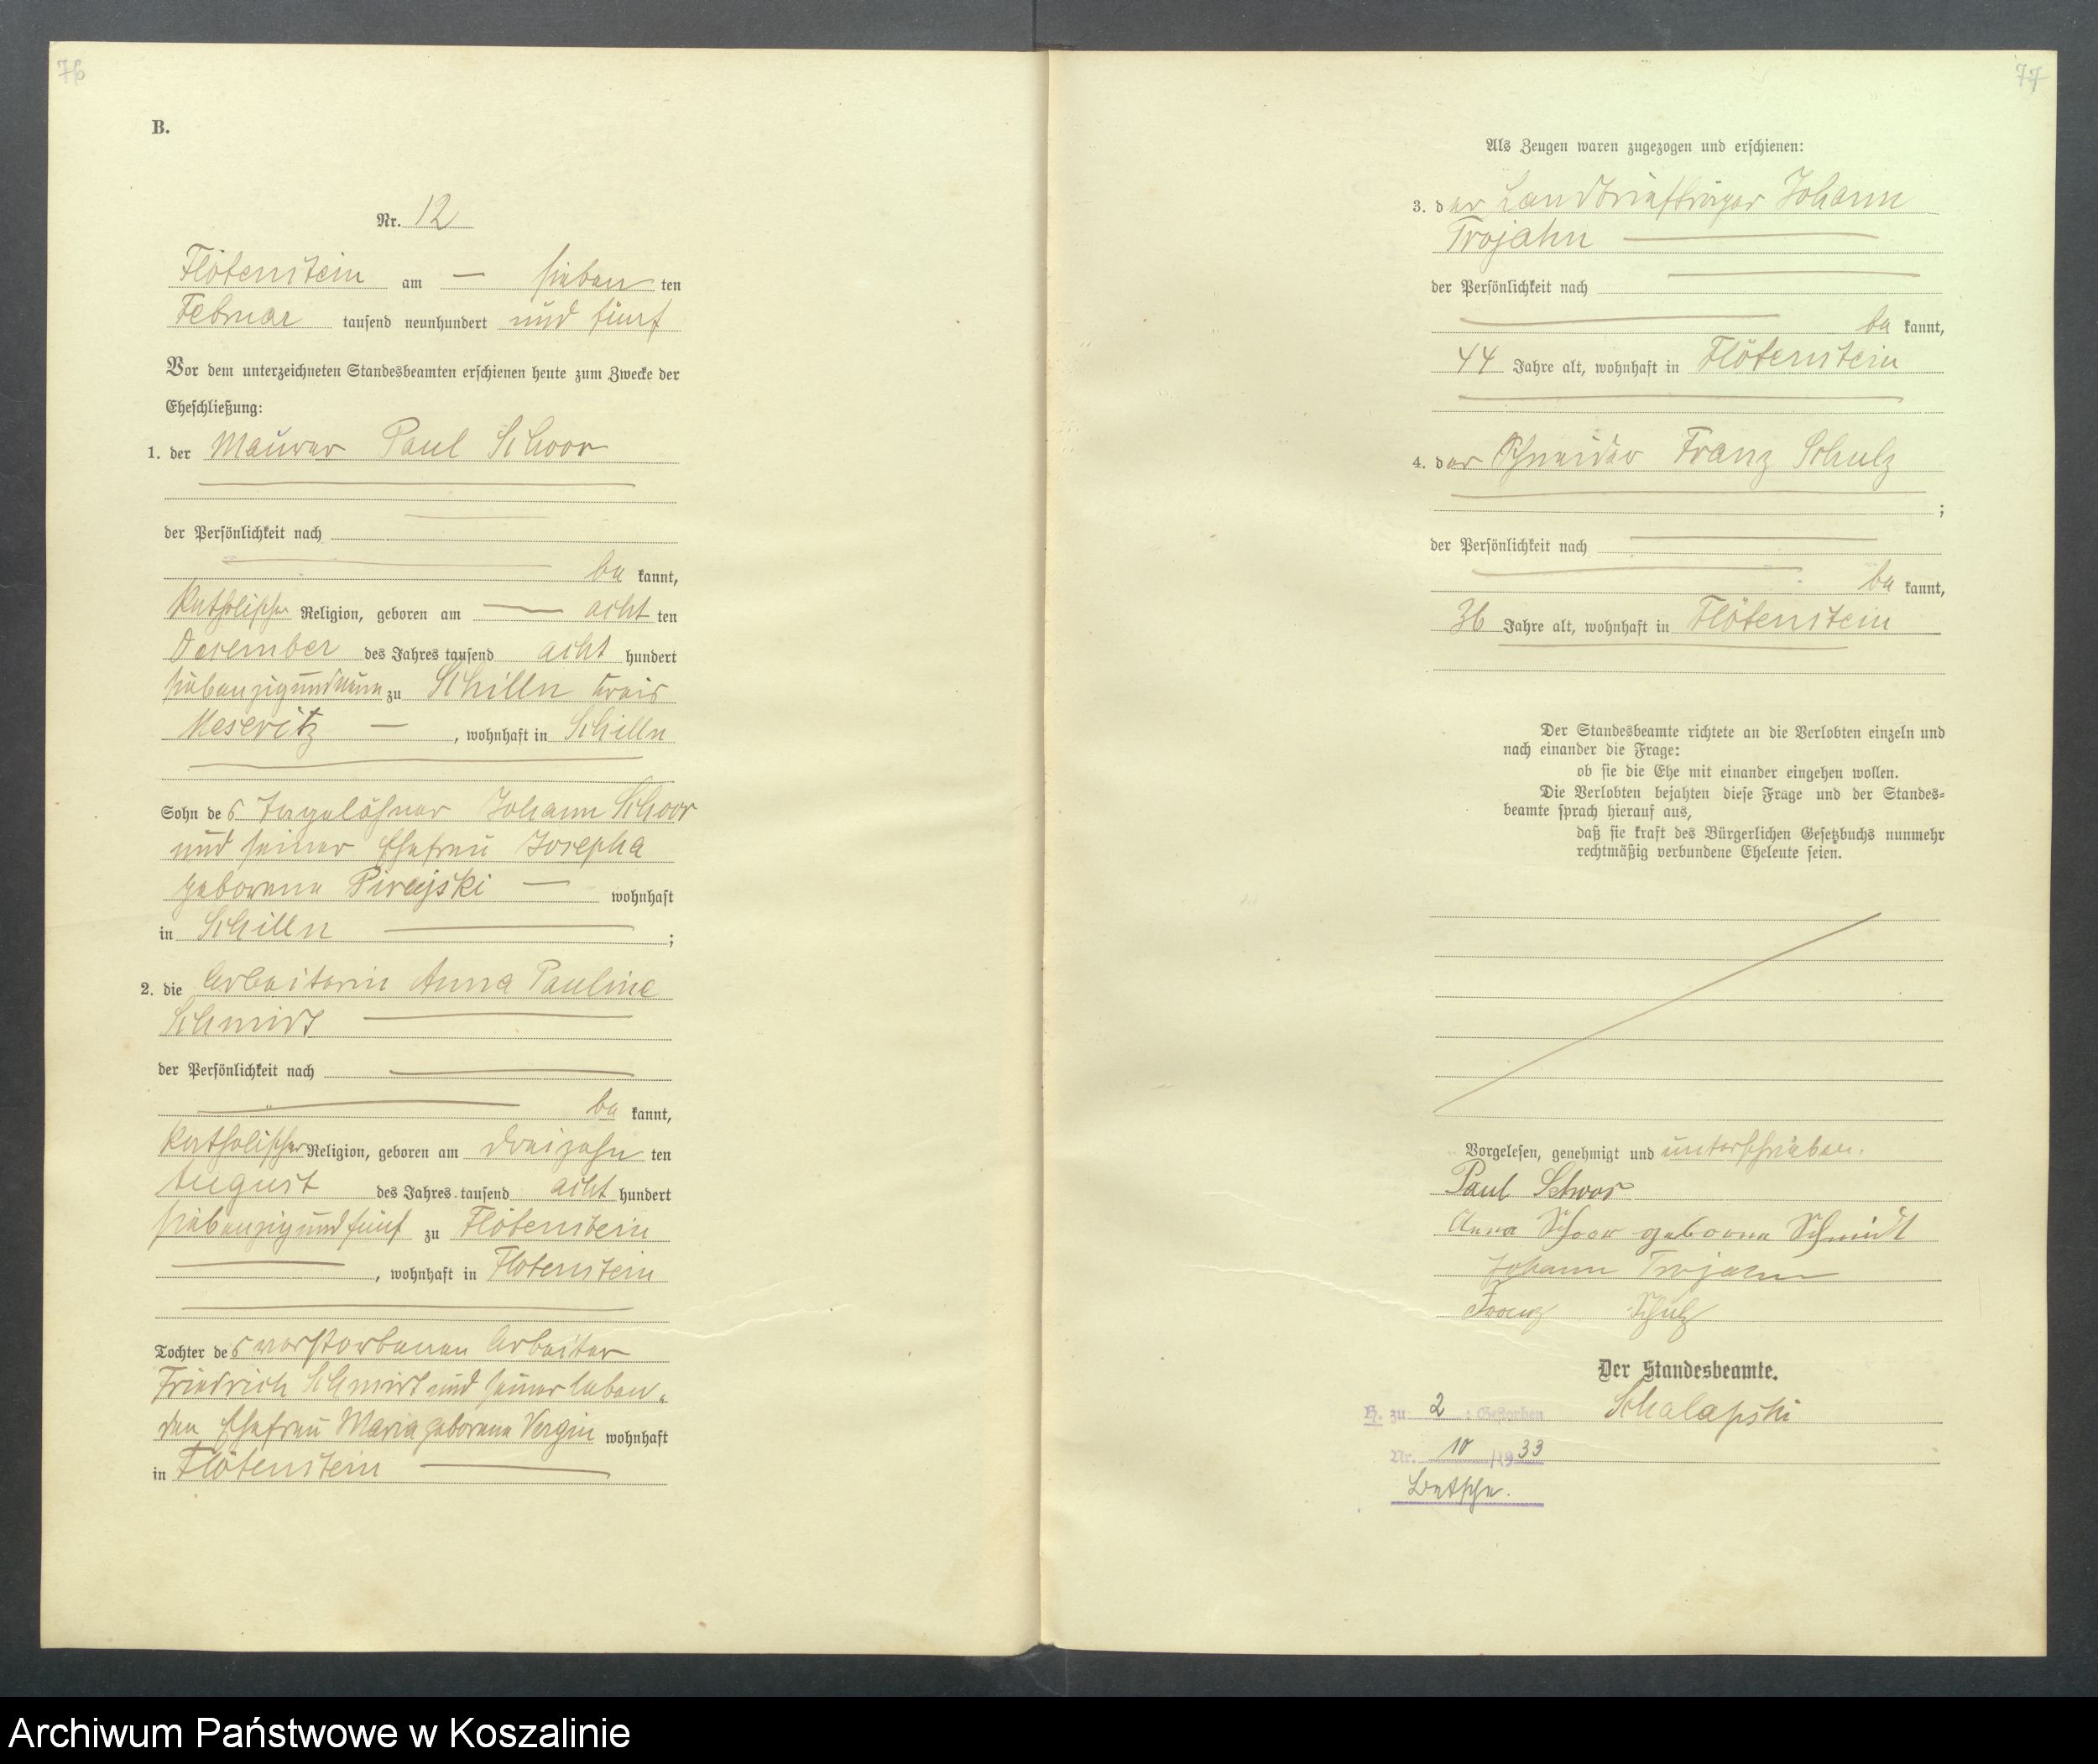 76
B.
Nr. 12
Flötenstein am — sieben ten
Februar tausend neunhundert und fünf
Vor dem unterzeichneten Standesbeamten erschienen heute zum Zwecke der
Eheschließung:
1. der Maurer Paul Schoor
der Persönlichkeit nach
be kannt,
katholischer Religion, geboren am — acht ten
Dezember des Jahres tausend acht hundert
siebenzigundneun zu Schilln Kreis
Meseritz — , wohnhaft in Schilln
Sohn des Tagelöhner Johann Schoor
und seiner Ehefrau Josepha
geborene Pirajski — wohnhaft
in Schilln ;
2. die Arbeiterin Anna Pauline
Schmidt
der Persönlichkeit nach
be kannt,
katholischer Religion, geboren am dreizehn ten
August des Jahres tausend acht hundert
siebenzigundfünf zu Flötenstein
, wohnhaft in Flötenstein
Tochter des verstorbenen Arbeiter
Friedrich Schmidt und seiner leben-
den Ehefrau Maria geborene Vergin wohnhaft
in Flötenstein
77
Als Zeugen waren zugezogen und erschienen:
3. der Landbriefträger Johann
Trojahn
der Persönlichkeit nach
be kannt,
44 Jahre alt, wohnhaft in Flötenstein
4. der Schneider Franz Schulz
;
der Persönlichkeit nach
be kannt,
36 Jahre alt, wohnhaft in Flötenstein
Der Standesbeamte richtete an die Verlobten einzeln und
nach einander die Frage:
ob sie die Ehe mit einander eingehen wollen.
Die Verlobten bejahten diese Frage und der Standes=
beamte sprach hierauf aus,
daß sie kraft des Bürgerlichen Gesetzbuchs nunmehr
rechtmäßig verbundene Eheleute seien.
Vorgelesen, genehmigt und unterschrieben.
Paul Schoor
Anna Schoor geborene Schmidt
Johann Trojahn
Franz Schulz
Der Standesbeamte.
Schalapski
H. zu 2 : Gestorben
Nr. 10 /1933
Betsche.
Archiwum Państwowe w Koszalinie